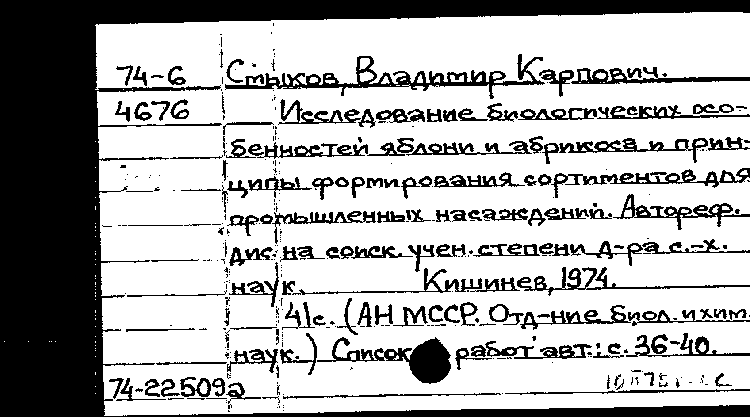 74-6 Стыков, Владимир Карпович.
4676 Исследование биологических осо-
бенностей яблони и абрикоса и прин-
ципы формирования сортиментов для
промышленных насаждений. Автореф.
дис. на соиск. учен. степени д-ра с.-х.
наук. Кишинев, 1974.
41с. (АН МССР. Отд-ние биол. и хим.
наук.) Список работ авт.: с. 36-40.
74-22509а